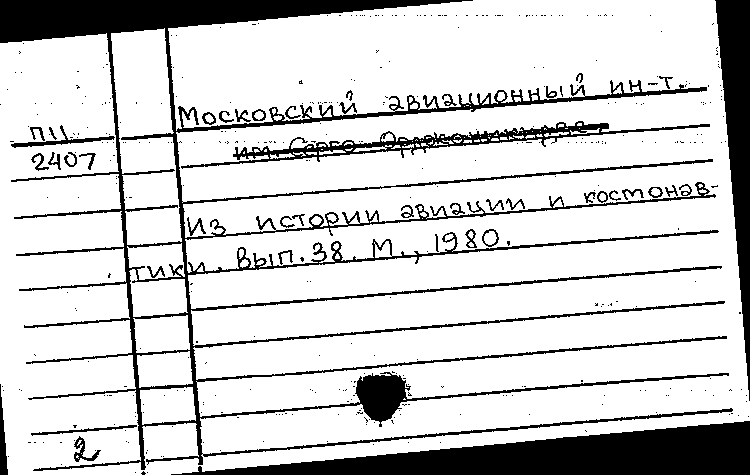 П11
2407
Московский авиационный ин-т.
им. Серго Орджоникидзе.
Из истории авиации и костонав-
тики. Вып. 38. М., 1980.
2